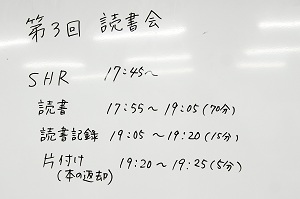 第3回 読書会
SHR 17:45～
読書 17:55～19:05(70分)
読書記録 19:05～19:20(15分)
片付け 19:20～19:25(5分)
(本の返却)